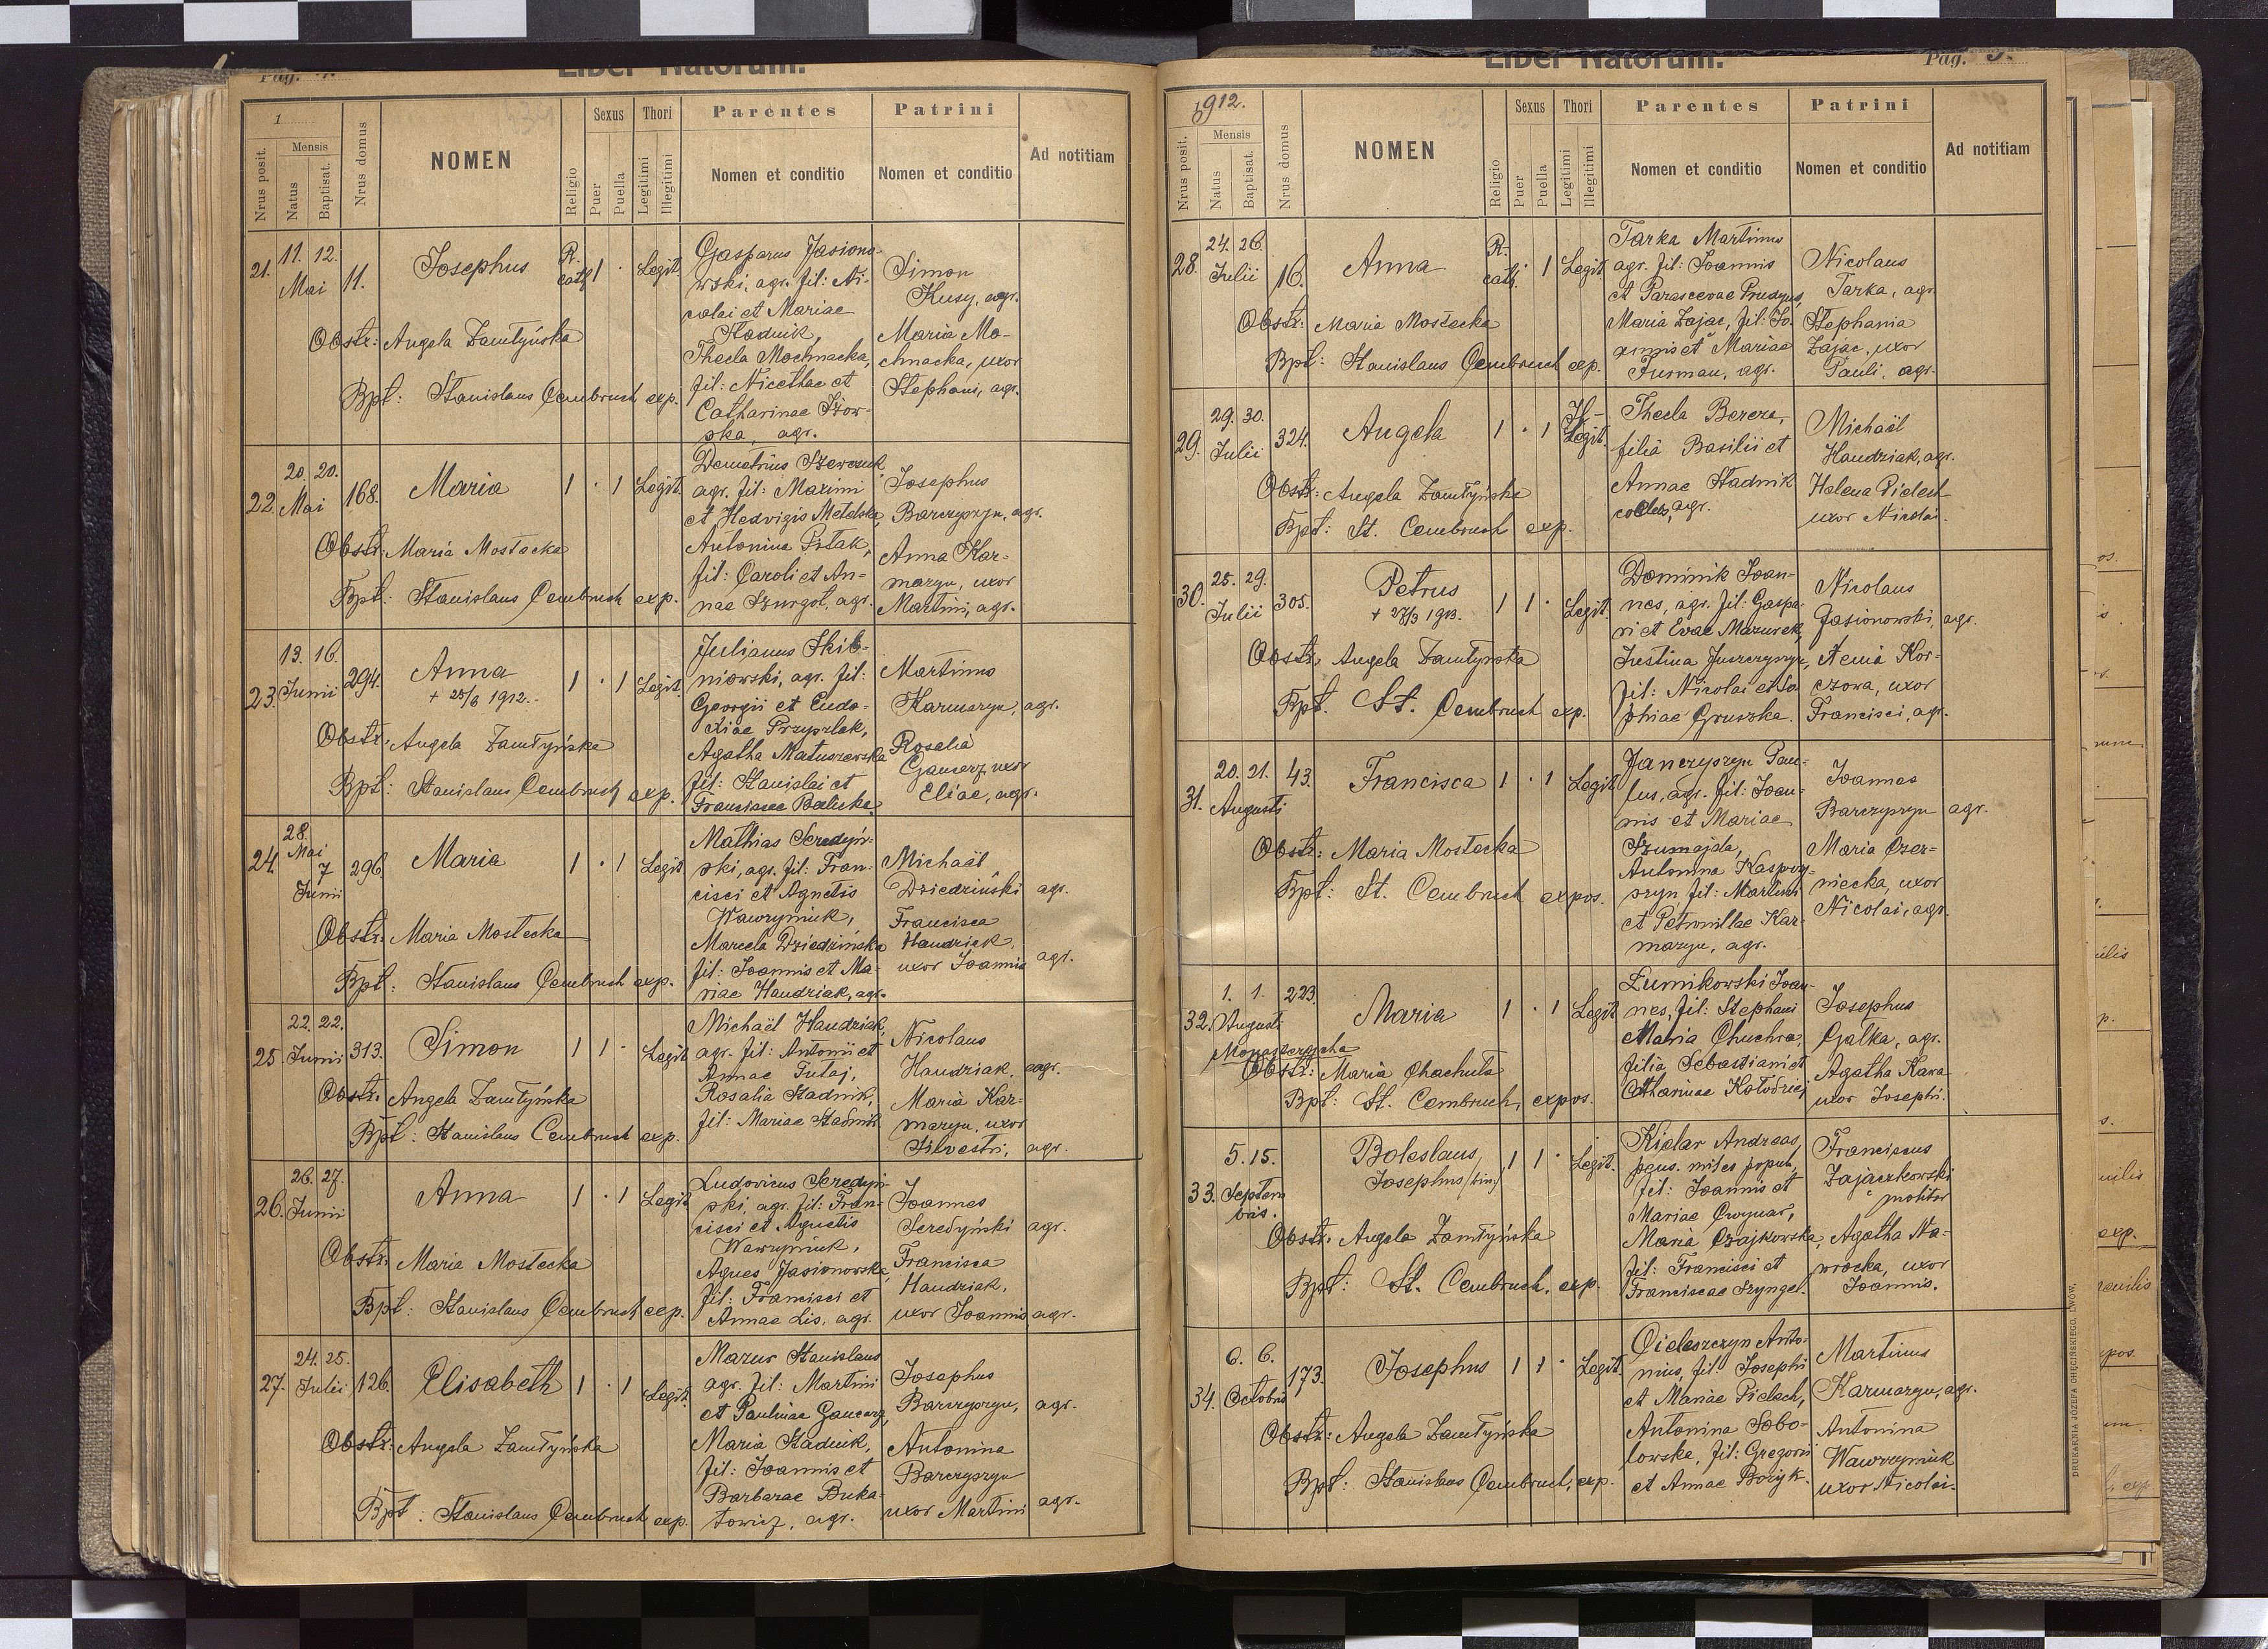 Pag. 4.
Liber Natorum.
1
Nrus posit.
Mensis
Natus
Baptisat.
Nrus domus
NOMEN
Religio
Sexus
Puer
Puella
Thori
Legitimi
Illegitimi
Parentes
Nomen et conditio
Patrini
Nomen et conditio
Ad notitiam
21.
11. 12.
Mai
11.
Josephus
R.
cath.
1 ·
Legit.
Gasparus Jasiono-
wski, agr. fil: Ni-
colai et Mariae
Stadnik,
Thecla Mochnacka,
fil: Nicethae et
Catharinae Iżow-
ska, agr.
Simon
Kusy, agr.
Maria Mo-
chnacka, uxor
Stephani, agr.
Obstr: Angela Zamłyńska
Bpt: Stanislaus Cembruch exp.
22.
20. 20.
Mai
168.
Maria
1 · 1
Legit.
Demetrius Szewczuk
agr. fil: Maximi
et Hedvigis Metelska,
Antonina Ptak,
fil: Caroli et An-
nae Szurgot, agr.
Josephus
Barczyszyn, agr.
Anna Kar-
mazyn, uxor
Martini, agr.
Obstr: Maria Mostecka
Bpt: Stanislaus Cembruch exp.
23.
13. 16.
Junii
294.
Anna
+ 25/6 1912.
1 · 1
Legit.
Julianus Skib-
niowski, agr. fil:
Georgii et Eudo-
kiae Przyszlak,
Agatha Matuszewska
fil: Stanislai et
Franciscae Balicka
Martinus
Karmazyn, agr.
Rosalia
Gancarz uxor
Eliae, agr.
Obstr: Angela Zamłyńska
Bpt: Stanislaus Cembruch exp.
24.
28.
Mai
7
Junii
296.
Maria
1 · 1
Legit
Mathias Seredyń-
ski, agr. fil: Fran-
cisci et Agnetis
Wawryniuk,
Marcela Dziedzińska
fil: Joannis et Ma-
riae Handziak, agr.
Michaël
Dziedziński agr.
Francisca
Handziak,
uxor Joannis agr.
Obstr: Maria Mostecka
Bpt: Stanislaus Cembruch exp.
25
22. 22.
Junii
313.
Simon
1 1 ·
Legit
Michaël Handziak,
agr. fil: Antonii et
Annae Putaj,
Rosalia Stadnik,
fil: Mariae Stadnik
Nicolaus
Handziak, agr.
Maria Kar-
mazyn, uxor
Silvestri, agr.
Obstr: Angela Zamłyńska
Bpt: Stanislaus Cembruch exp.
26.
26. 27.
Junii
Anna
1 · 1
Legit
Ludovicus Seredyń-
ski, agr. fil: Fran-
cisci et Agnetis
Wawryniuk,
Agnes Jasionowska,
fil: Francisci et
Annae Lis, agr.
Joannes
Seredyński agr.
Francisca
Handziak,
uxor Joannis, agr.
Obstr: Maria Mostecka
Bpt: Stanislaus Cembruch exp.
27.
24. 25.
Julii
126.
Elisabeth
1 · 1
Legit.
Mazur Stanislaus
agr. fil: Martini
et Paulinae Gancarz,
Maria Stadnik,
fil: Joannis et
Barbarae Buka-
towicz, agr.
Josephus
Barczyszyn, agr.
Antonina
Barczyszyn
uxor Martini agr.
Obstr: Angela Zamłyńska
Bpt: Stanislaus Cembruch exp.
Liber Natorum.
Pag. 5.
1912.
Nrus posit.
Mensis
Natus
Baptisat.
Nrus domus
NOMEN
Religio
Sexus
Puer
Puella
Thori
Legitimi
Illegitimi
Parentes
Nomen et conditio
Patrini
Nomen et conditio
Ad notitiam
28.
24. 26.
Julii
16.
Anna
R.
cath.
· 1
Legit.
Tarka Martinus
agr. fil: Joannis
et Parascevae Prudyus,
Maria Zając, fil: Jo-
annis et Mariae
Furman, agr.
Nicolaus
Tarka, agr.
Stephania
Zając, uxor
Pauli, agr.
Obstr: Maria Mostecka
Bpt: Stanislaus Cembruch exp.
29.
29. 30.
Julii
324.
Angela
1 · 1
Il-
Legit.
Thecla Bereza,
filia Basilii et
Annae Stadnik
agr.
Michaël
Handziak, agr.
Helena Pielech
uxor Nicolai.
Obstr: Angela Zamłyńska
Bpt: St. Cembruch exp.
30.
25. 29.
Julii
305.
Petrus
+ 27/3 1913.
1 1 ·
Legit.
Dominik Joan-
nes, agr. fil: Gaspa-
ri et Evae Mazurek,
Justina Juszczyszyn,
fil: Nicolai et So-
phiae Gruszka.
Nicolaus
Jasionowski, agr.
Xenia Kor-
czowa, uxor
Francisci, agr.
Obstr: Angela Zamłyńska
Bpt. St. Cembruch exp.
31.
20. 21.
Augusti
43.
Francisca
1 · 1
Legit
Janczyszyn Pau-
lus, agr. fil: Joan-
nis et Mariae
Szumajda,
Antonina Kaspry-
szyn fil: Martini
et Petronillae Kar-
mazyn, agr.
Joannes
Barczyszyn agr.
Maria Czer-
niecka, uxor
Nicolai, agr.
Obstr: Maria Mostecka
Bpt: St. Cembruch expos.
32.
1. 1.
Augusti
223.
Maria
1 · 1
Legit
Żurnikowski Joan-
nes, fil: Stephani
Maria Chuchra,
filia Sebastiani et
Catharinae Kołodziej
Josephus
Gałka, agr.
Agatha Kawa
uxor Josephi.
Obstr: Maria Chachuła
Bpt: St. Cembruch, expos.
33.
5. 15.
Septem
bris.
Boleslaus,
Josephus (bin.)
1 1 ·
Legit.
Kielar Andreas,
pens. miles
fil: Joannis et
Mariae Cwynar,
Maria Czajkowska,
fil: Francisci et
Franciscae Szyngel.
Franciscus
Zajączkowski
molitor
Agatha Na-
wrocka, uxor
Joannis.
Obstr. Angela Zamłyńska
Bpt: St. Cembruch, exp.
34.
6. 6.
Octobris
173.
Josephus
1 1 ·
Legit.
Cieleszczyn Anto-
nius, fil: Josephi
et Mariae Pielach,
Antonina Sobo-
lowska, fil: Gregorii
et Annae Bożyk.
Martinus
Karmazyn, agr.
Antonina
Wawryniuk
uxor Nicolai.
Obstr: Angela Zamłyńska
Bpt: Stanislaus Cembruch, exp.
DRUKARNIA JÓZEFA CHĘCIŃSKIEGO, LWÓW.